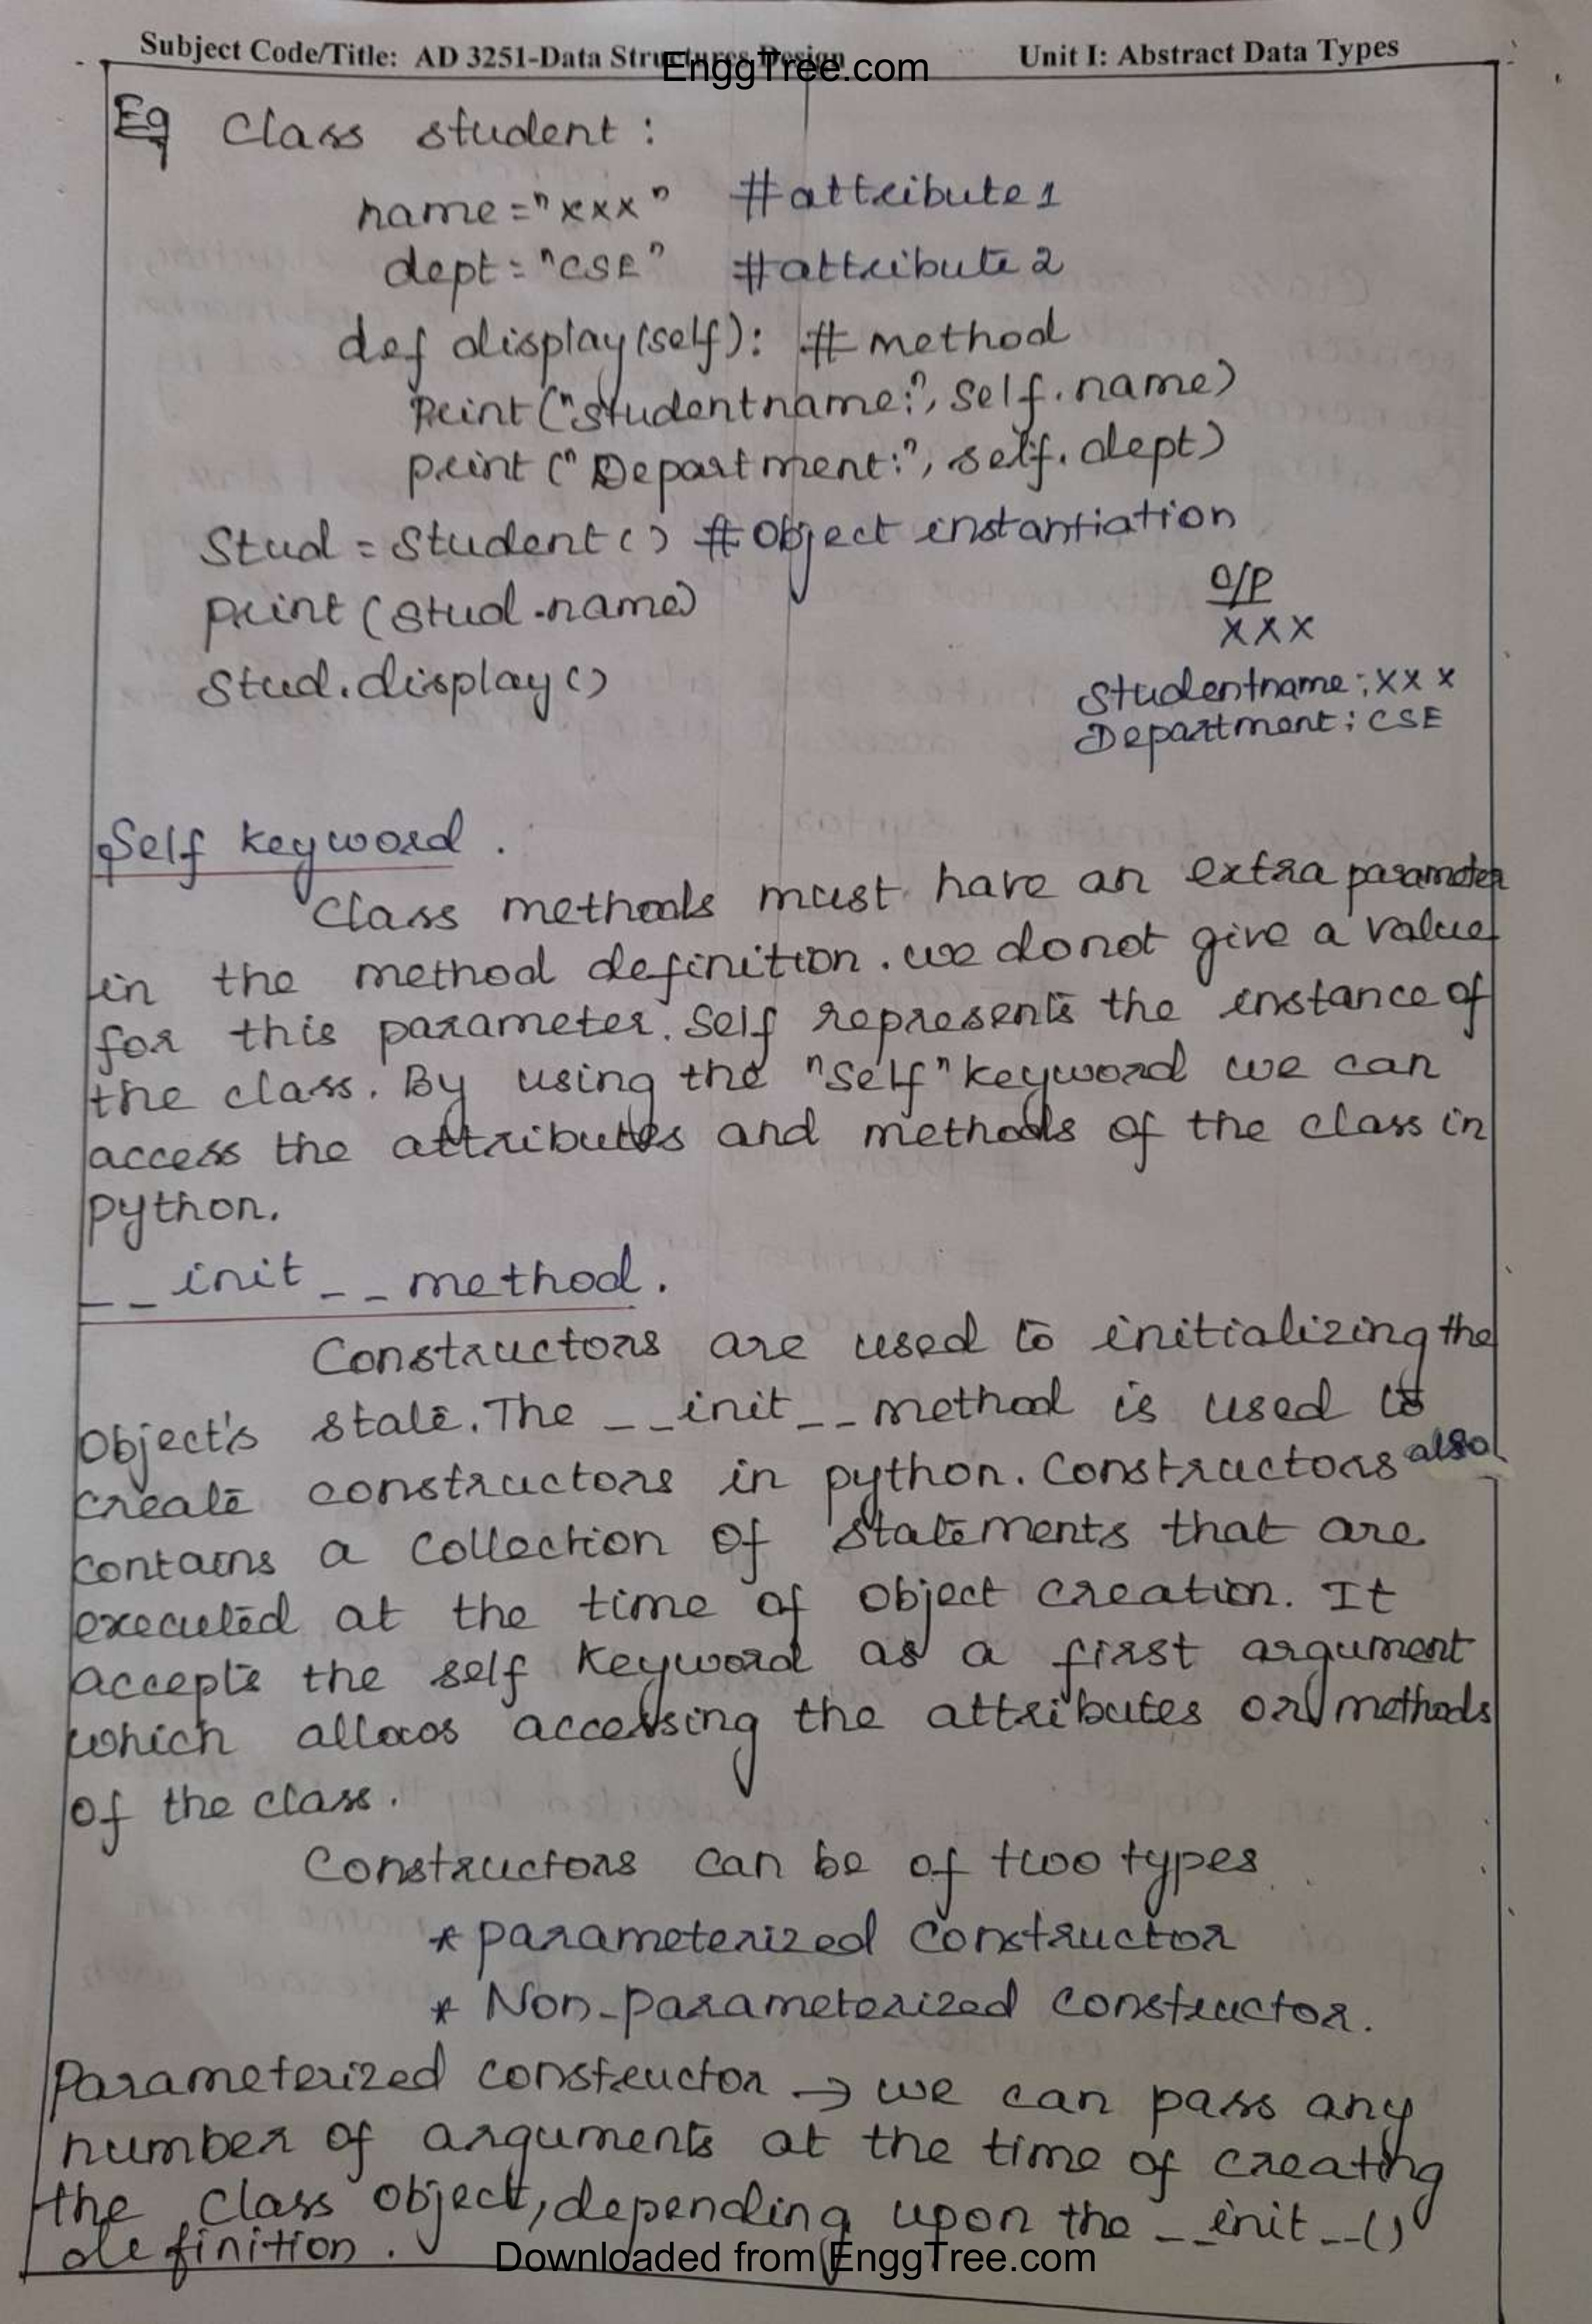 Subject Code/Title: AD 3251-Data Structures Design Unit I: Abstract Data Types
EnggTree.com
Eg Class student :
name="xxx" #attribute1
dept="CSE" #attribute2
def display(self): # method
print("studentname:", self.name)
print("Department:", self.dept)
Stud = Student() #Object instantiation
print(stud.name)
Stud.display()
O/P
XXX
Studentname:XXX
Department: CSE
Self keyword.
Class methods must have an extra parameter
in the method definition. we donot give a value
for this parameter. Self represents the instance of
the class. By using the "self" keyword we can
access the attributes and methods of the class in
python.
__init__ method.
Constructors are used to initializing the
Object's state. The __init__ method is used to
create constructors in python. Constructors also
contains a collection of statements that are
executed at the time of object creation. It
accepts the self keyword as a first argument
which allows accessing the attributes or methods
of the class.
Constructors can be of two types
* parameterized constructor
* Non-parameterized constructor.
Parameterized constructor → we can pass any
number of arguments at the time of creating
the class object, depending upon the __init__()
definition.
Downloaded from EnggTree.com